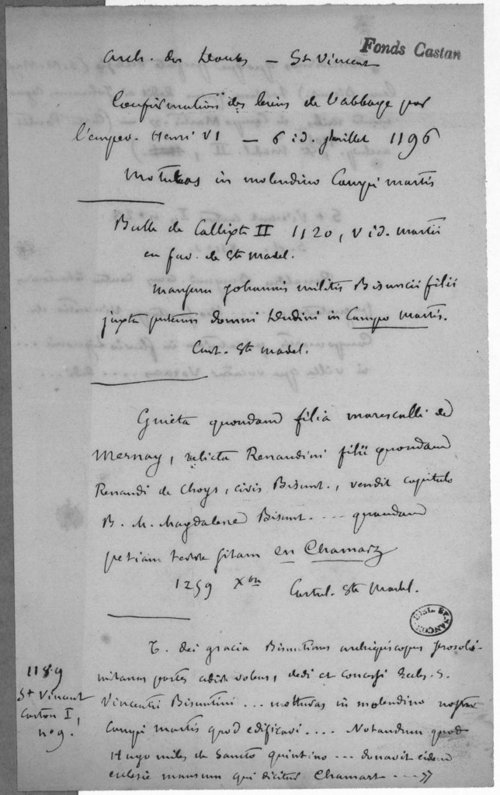 Fonds Castan
Arch. du Doubs — St Vincent
Confirmation des biens de l'abbaye par
l'emper. Henri VI — 6 id. Juillet 1196
in molendino Campi martis
Bulle de Callixte II 1120, V id. martii
en fav. de Ste Madel.
Mansum Johannis militis Bisuncii filii
juxta puteum domni in Campo Martis.
Cart. Ste Madel.
Guieta quondam filia marescalli de
Mernay, relicta Renaudini filii quondam
Renaudi de Choys, civis Bisunt., vendit capitulo
B. M. Magdalene Bisunt. .... quamdam
petiam terre sitam en Chamarz
1259 Xbre Cartul. Ste Madel.
T. dei gracia Bisuntinus archiepiscopus
dedi et concessi Eccles. S.
Vincentii Bisuntini ... motturas in molendino nostro
Campi martis quod edificavi .... Notandum quod
Hugo miles de Sancto quintino ... donavit eidem
ecclesie mansum qui dicitur Chamart ---- »
1189
St Vincent
Carton I,
n° 9.